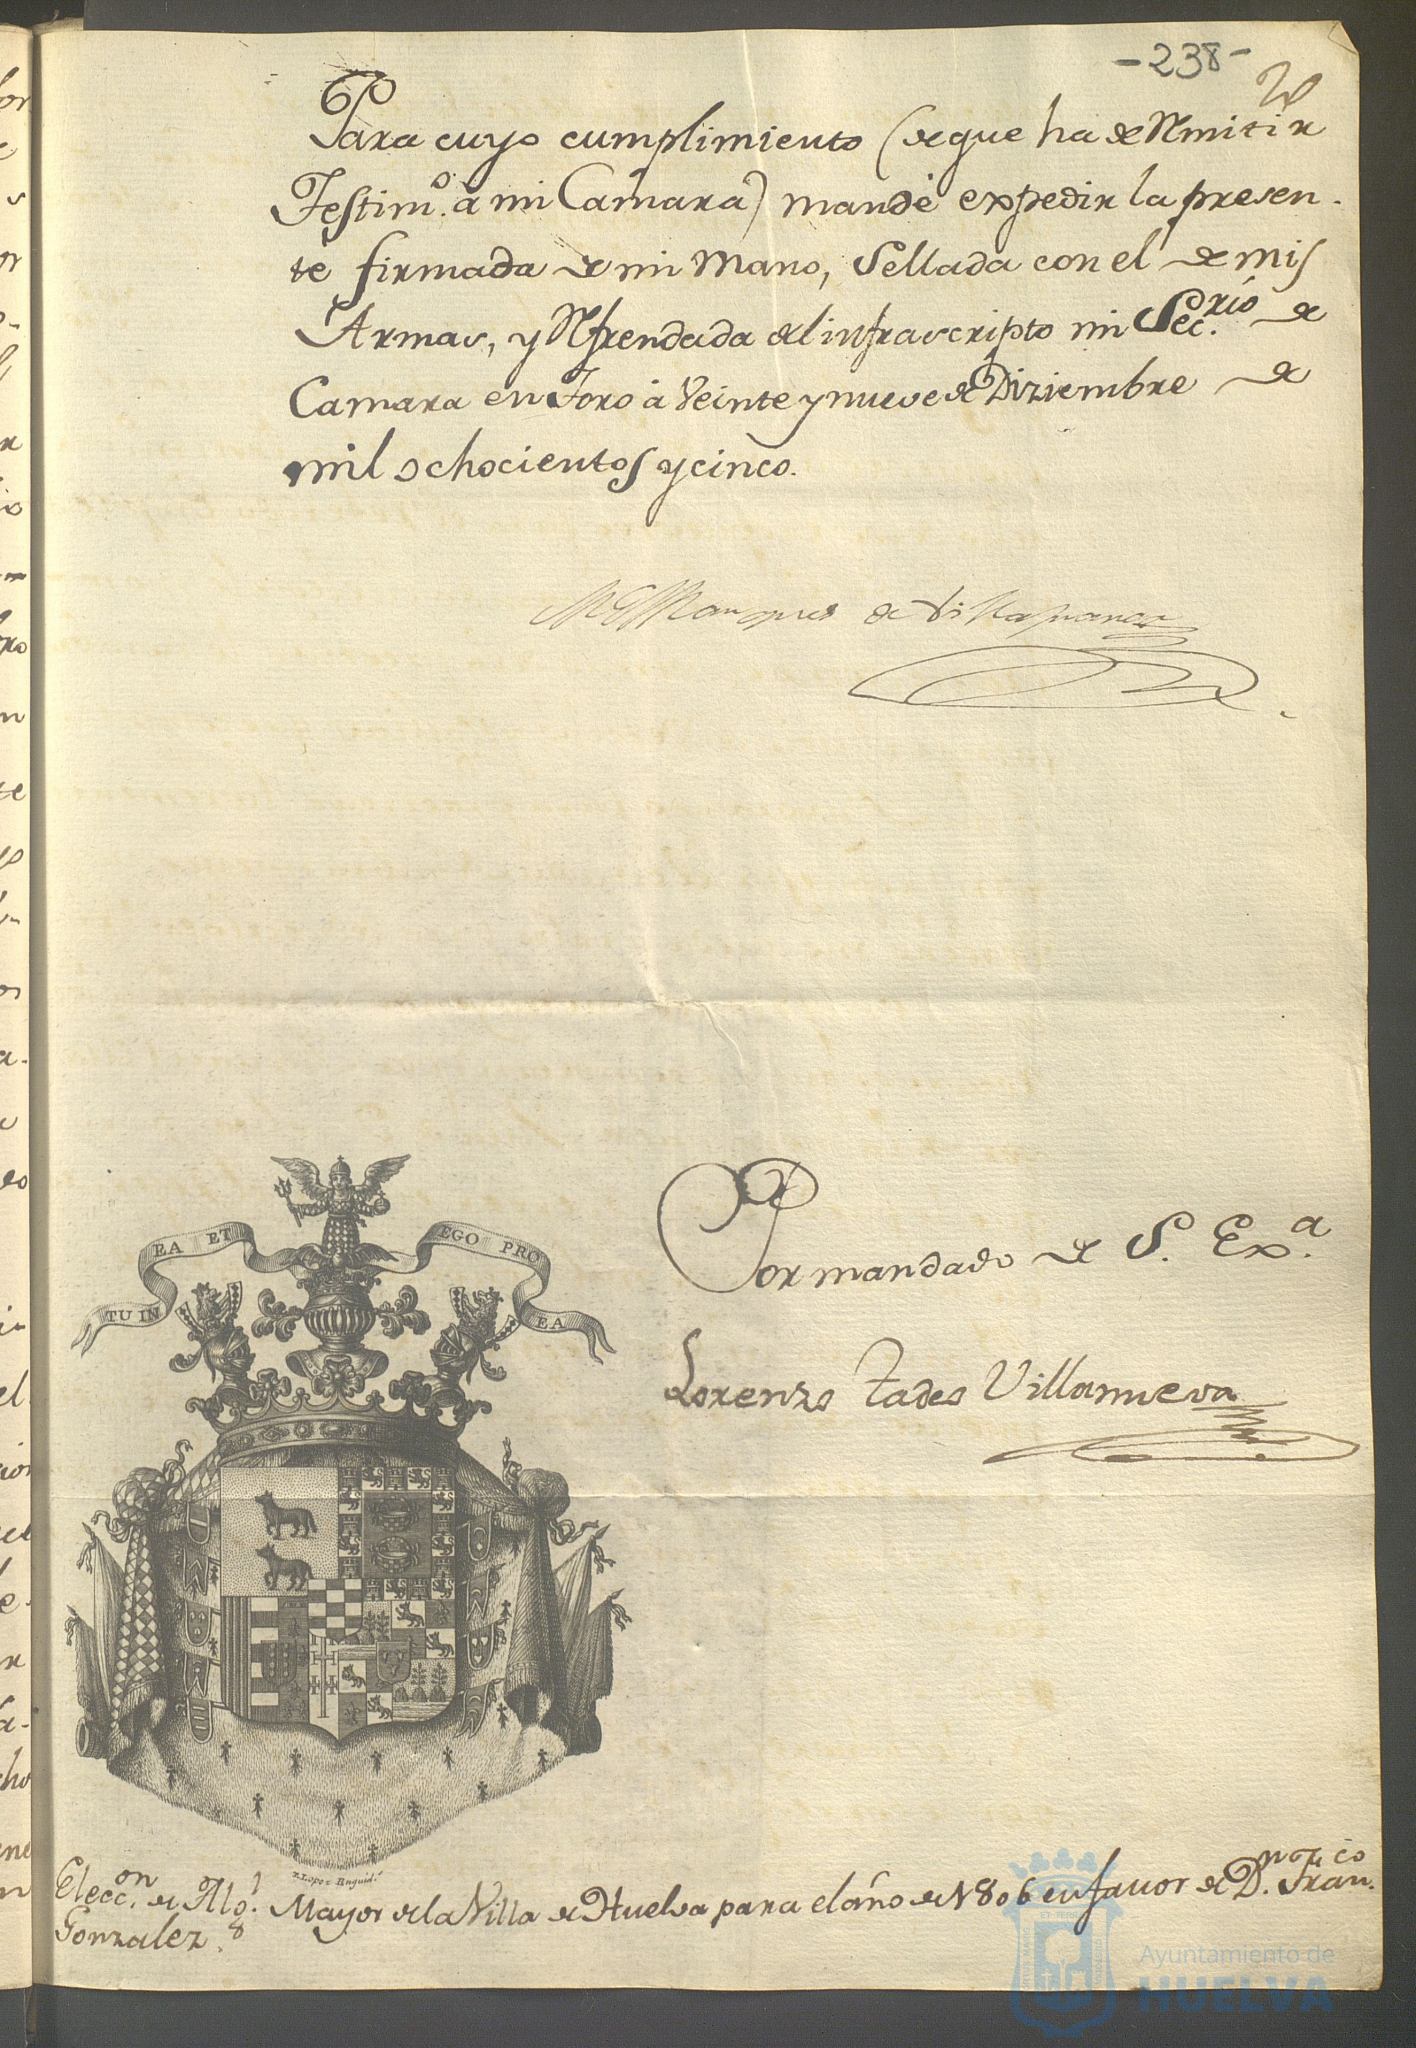 -238-
Para cuyo cumplimiento (de que ha de Rmitir
Testim.o à mi Camara) mandè expedir la presen-
te firmada de mi Mano, Sellada con el de mis
Armas, y Rfrendada del infrascripto mi Sec.rio de
Camara en Toro à Veinte y nueve de Diziembre de
mil ochocientos y cinco.
El Marques de Villafranca
Por mandado de S. Ex.a
Lorenzo Tadeo Villanueva
TU IN EA ET EGO PRO EA
Elecc.on de Alg.l Mayor de la Villa de Huelva para el año de 1806 en favor de D.n Fran.co
Gonzalez.
Ayuntamiento de
HUELVA